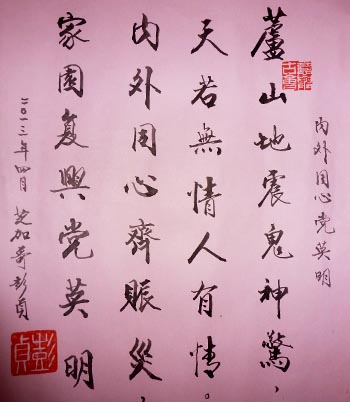 内外同心党英明
蘆山地震鬼神驚，
天若無情人有情。
内外同心齊賑災，
家園复興党英明
二〇一三年四月 芝加哥彭貞
彭貞